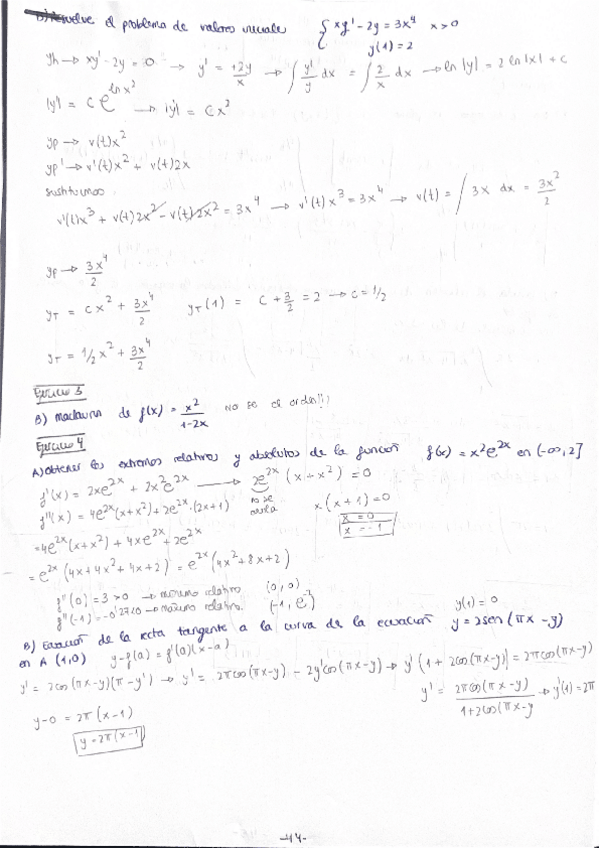 Resuelve el problema de valores iniciales { xy' - 2y = 3x⁴ x > 0
y(1) = 2
yh → xy' - 2y = 0 → y' = +2y/x → ∫ y'/y dx = ∫ 2/x dx → ln|y| = 2 ln|x| + c
|y| = C e^(ln x²) → |y| = Cx²
yp → v(t)x²
yp' → v'(t)x² + v(t)2x
sustituimos
v'(t)x³ + v(t)2x² - v(t)2x² = 3x⁴ → v'(t)x³ = 3x⁴ → v(t) = ∫ 3x dx = 3x²/2
yp → 3x⁴/2
yT = cx² + 3x⁴/2 yT(1) = C + 3/2 = 2 → c = 1/2
yT = 1/2 x² + 3x⁴/2
Ejercicio 3
B) maclaurin de f(x) = x²/(1-2x) NO SE EL ORDEN!!)
Ejercicio 4
A) obtener los extremos relativos y absolutos de la función f(x) = x²e^(2x) en (-∞, 2]
f'(x) = 2xe^(2x) + 2x²e^(2x) → 2e^(2x) (x + x²) = 0
no se anula
x(x+1) = 0
x = 0
x = -1
f''(x) = 4e^(2x)(x+x²) + 2e^(2x)·(2x+1)
= 4e^(2x)(x+x²) + 4xe^(2x) + 2e^(2x)
= e^(2x)(4x + 4x² + 4x + 2) = e^(2x)(4x² + 8x + 2)
f''(0) = 3 > 0 → mínimo relativo (0, 0)
f''(-1) = -0'27 < 0 → máximo relativo. (-1, e^(-2))
y(1) = 0
B) Ecuación de la recta tangente a la curva de la ecuación y = 2sen(πx - y)
en A (1,0) y - f(a) = f'(a)(x-a)
y' = 2cos(πx-y)(π-y') → y' = 2πcos(πx-y) - 2y'cos(πx-y) → y'(1 + 2cos(πx-y)) = 2πcos(πx-y)
y' = 2πcos(πx-y)/(1+2cos(πx-y → y'(1) = 2π
y-0 = 2π(x-1)
y = 2π(x-1)
-44-